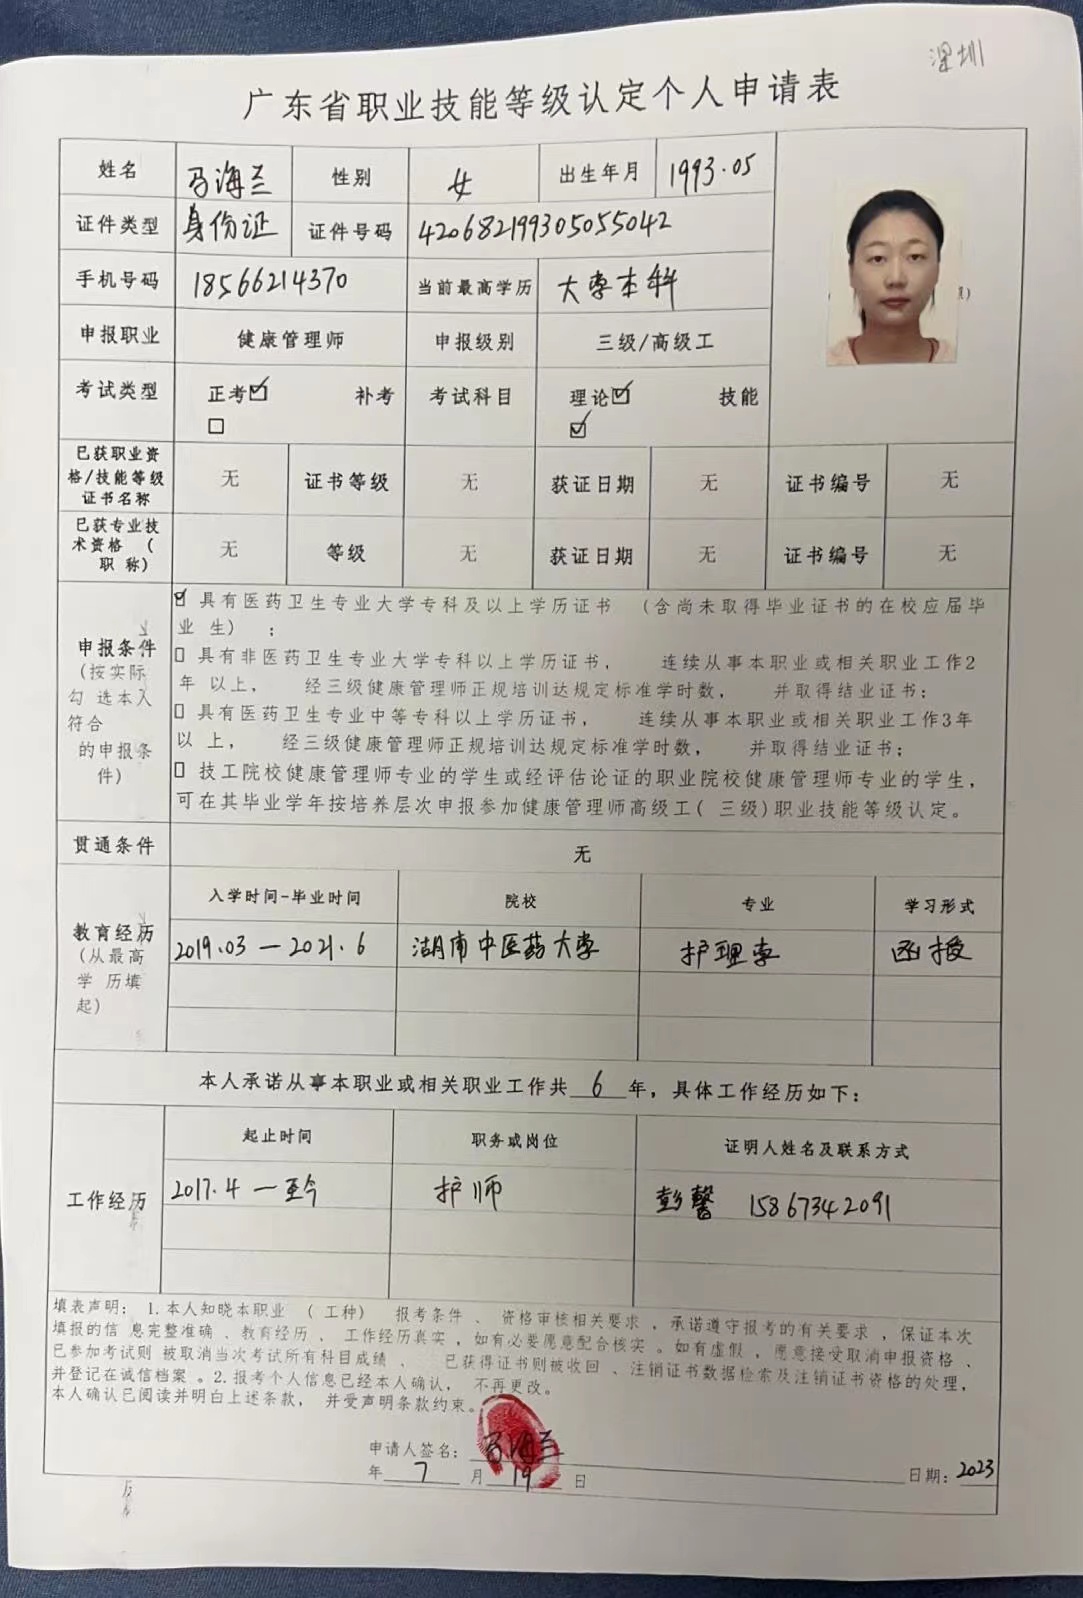 深圳
广东省职业技能等级认定个人申请表
姓名 马海兰 性别 女 出生年月 1993.05
证件类型 身份证 证件号码 420682199305055042
手机号码 18566214370 当前最高学历 大学本科
申报职业 健康管理师 申报级别 三级/高级工
考试类型 正考☑ 补考 考试科目 理论☑ 技能
□ ☑
已获职业资
格/技能等级
证书名称
无 证书等级 无 获证日期 无 证书编号 无
已获专业技
术资格 (
职 称)
无 等级 无 获证日期 无 证书编号 无
申报条件
(按实际
勾 选本人
符合
的申报条
件)
☑ 具有医药卫生专业大学专科及以上学历证书 (含尚未取得毕业证书的在校应届毕
业 生) ;
□ 具有非医药卫生专业大学专科以上学历证书, 连续从事本职业或相关职业工作2
年 以上, 经三级健康管理师正规培训达规定标准学时数, 并取得结业证书;
□ 具有医药卫生专业中等专科以上学历证书, 连续从事本职业或相关职业工作3年
以 上, 经三级健康管理师正规培训达规定标准学时数, 并取得结业证书;
□ 技工院校健康管理师专业的学生或经评估论证的职业院校健康管理师专业的学生,
可在其毕业学年按培养层次申报参加健康管理师高级工( 三级)职业技能等级认定。
贯通条件 无
教育经历
(从最高
学 历填
起)
入学时间-毕业时间 院校 专业 学习形式
2019.03 — 2021.6 湖南中医药大学 护理学 函授
本人承诺从事本职业或相关职业工作共 6 年,具体工作经历如下:
工作经历
起止时间 职务或岗位 证明人姓名及联系方式
2017.4 — 至今 护师 彭馨 15867342091
填表声明: 1.本人知晓本职业 ( 工种) 报考条件 、 资格审核相关要求 ,承诺遵守报考的有关要求 ,保证本次
填报的信 息完整准确 、教育经历 、 工作经历真实 ,如有必要愿意配合核实 。如有虚假 ,愿意接受取消申报资格 、
已参加考试则 被取消当次考试所有科目成绩 、 已获得证书则被收回 、注销证书数据检索及注销证书资格的处理,
并登记在诚信档案 。2.报考个人信息已经本人确认, 不再更改。
本人确认已阅读并明白上述条款, 并受声明条款约束。
申请人签名: 马海兰
日期: 2023
年 7 月 19 日